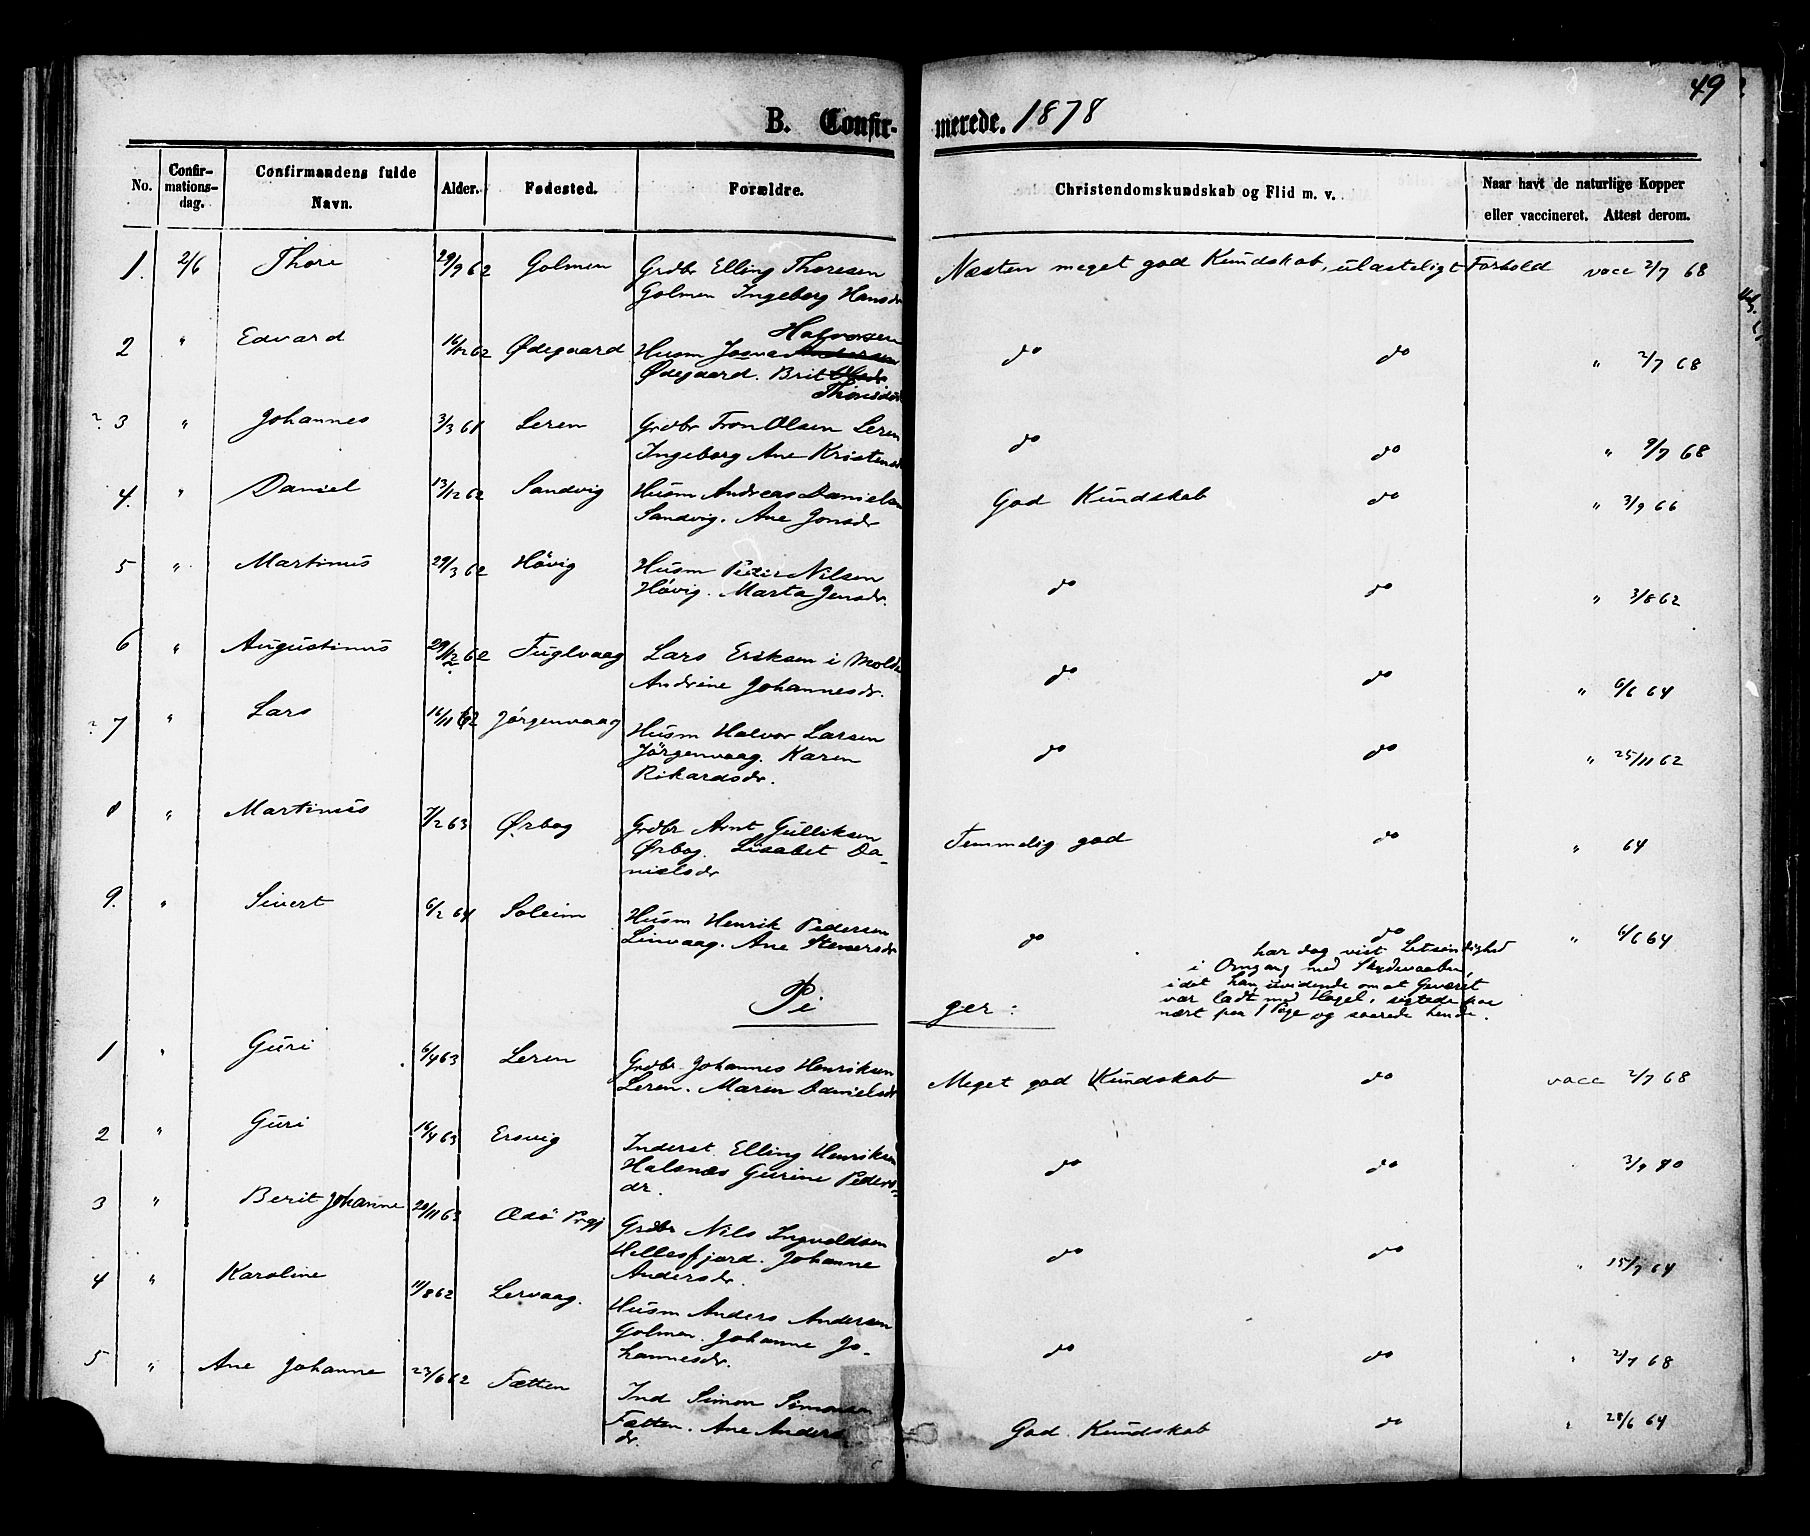 49
B. Confirmerede. 1878
No. Confirmationsdag. Confirmandens fulde Navn. Alder. Fødested. Forældre. Christendomskundskab og Flid m. v. Naar havt de naturlige Kopper eller vaccineret. Attest derom.
1. 2/6 Thore 29/9 62 Golmen Grdbr Elling Thoresen Næsten meget god Kundskab, ulasteligt Forhold vacc 2/7 68
Golmen Ingeborg Hansdr
Halvorsen
2 " Edvard 16/12 62 Ødegaard Husm Josva Andersen do do " 2/7 68
Ødegaard. Brit
Thorisdr
3 " Johannes 3/3 61 Leren Grdbr Tron Olsen Leren do do " 9/7 68
Ingeborg Ane Kristensdr
4. " Daniel 13/12 62 Sandvig Husm Andreas Danielsen God Kundskab do " 3/9 66
Sandvig. Ane Jonsdr
5 " Martinus 29/3 62 Hövig Husm Peder Nilsen do do " 3/8 62
Hövig. Marta Jensdr.
6 " Augustinus 29/12 62 Fuglvaag Lars Eriksen i Molde do do " 6/6 64
Andrine Johannesdr.
7 " Lars 16/11 62 Jörgenvaag Husm Halvor Larsen do do " 25/11 62
Jörgenvaag. Karen
Rikardsdr.
8 " Martinus 7/2 63 Ørbog Grdbr Arnt Gulliksen Temmelig god do " 64
Ørbog. Lisabet Da-
nielsdr
9. " Sivert 6/2 64 Soleim Husm Henrik Pedersen do do " 6/6 64
Linvaag. Ane Stenersdr
har dog vist Letsindighed
i Omgang med Skydevaaben,
idet han uvidende om at Geværet
var ladt med Hagel, sigtede paa
nært paa 1 Pige og saarede hende.
Piger:
1 " Guri 6/4 63 Leren Grdbr. Johannes Henriksen Meget god Kundskab do vacc 2/7 68
Leren. Maren Danielsdr
2 " Guri 16/4 63 Ersvig Inderst Elling Henriksen do do 3/9 70
Halsnæs Gurine Peders-
dr.
3 " Berit Johanne 28/11 63 Ædö Prgj Grdbr Nils Ingvaldsen do do " 15/7 64
Hellesfjord. Johanne
Andersdr.
4 " Karoline 11/8 62 Lervaag. Husm Anders Andersen do do " 2/7 68
Golmen. Johanne Jo-
hannesdr.
5 " Ane Johanne 23/6 62 Fætten Ind Simon Simonsen God Kundskab do " 28/6 64
Fætten. Ane Anders
dr.